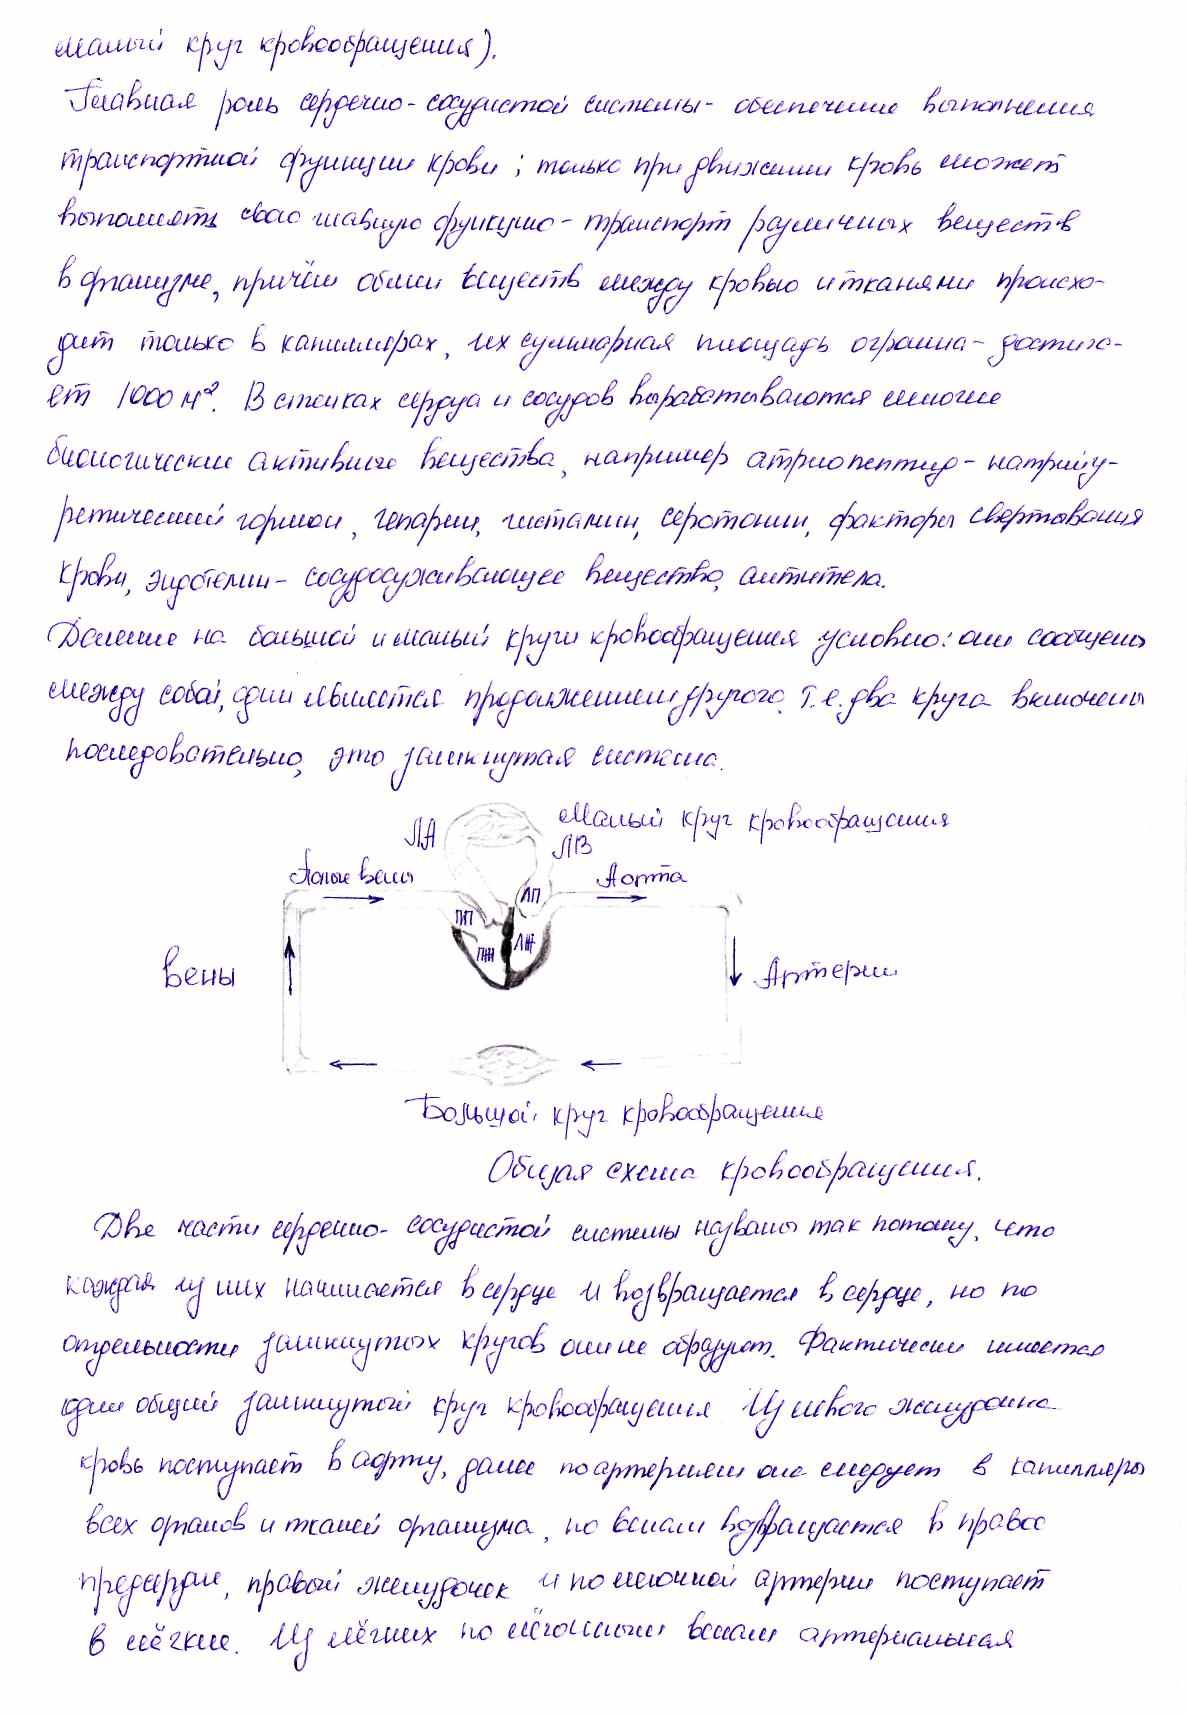 малый круг кровообращения).
Главная роль сердечно-сосудистой системы- обеспечение выполнения
транспортной функции крови; только при движении кровь может
выполнять свою главную функцию- транспорт различных веществ
в организме, причём обмен веществ между кровью и тканями происхо-
дит только в капиллярах, их суммарная площадь огромна- достига-
ет 1000 м². В стенках сердца и сосудов вырабатываются многие
биологические активные вещества, например атриопептид- натрийу-
ретический гормон, гепарин, гистамин, серотонин, факторы свертывания
крови, эндотелин- сосудосуживающее вещество, антитела.
Деление на большой и малый круги кровообращения условно: они сообщены
между собой, один является продолжением другого. Т.е. два круга включены
последовательно, это замкнутая система.
ЛА
Малый круг кровообращения
ЛВ
Полые вены
Аорта
ЛП
ПП
ПЖ
ЛЖ
Вены
Артерии
Большой круг кровообращения
Общая схема кровообращения.
Две части сердечно-сосудистой системы названы так потому, что
каждая из них начинается в сердце и возвращается в сердце, но по
отдельности замкнутых кругов они не образуют. Фактически имеется
один общий замкнутый круг кровообращения Из левого желудочка
кровь поступает в аорту, далее по артериям она следует в капилляры
всех органов и тканей организма, по венам возвращается в правое
предсердие, правый желудочек и по легочной артерии поступает
в лёгкие. Из лёгких по лёгочными венам артериальная